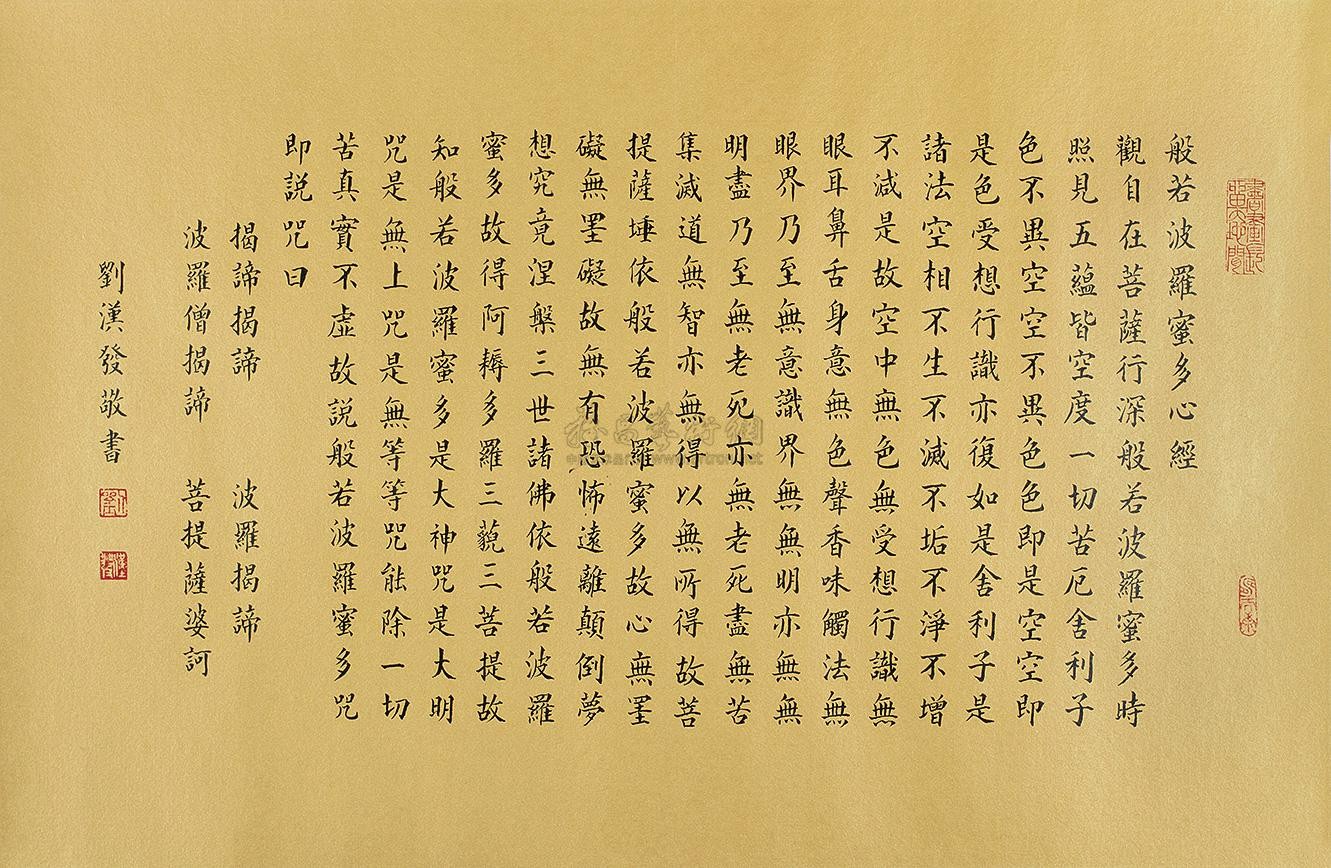 般若波羅蜜多心經
觀自在菩薩行深般若波羅蜜多時
照見五蘊皆空度一切苦厄舍利子
色不異空空不異色色即是空空即
是色受想行識亦復如是舍利子是
諸法空相不生不滅不垢不淨不增
不減是故空中無色無受想行識無
眼耳鼻舌身意無色聲香味觸法無
眼界乃至無意識界無無明亦無無
明盡乃至無老死亦無老死盡無苦
集滅道無智亦無得以無所得故菩
提薩埵依般若波羅蜜多故心無罣
礙無罣礙故無有恐怖遠離顛倒夢
想究竟涅槃三世諸佛依般若波羅
蜜多故得阿耨多羅三藐三菩提故
知般若波羅蜜多是大神咒是大明
咒是無上咒是無等等咒能除一切
苦真實不虛故説般若波羅蜜多咒
即説咒曰
揭諦揭諦 波羅揭諦
波羅僧揭諦 菩提薩婆訶
劉漢發敬書